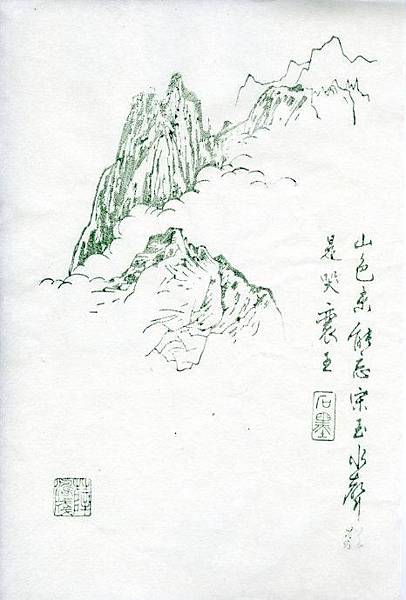 山色未能忘宋玉水聲猶
是哭襄王
石墨